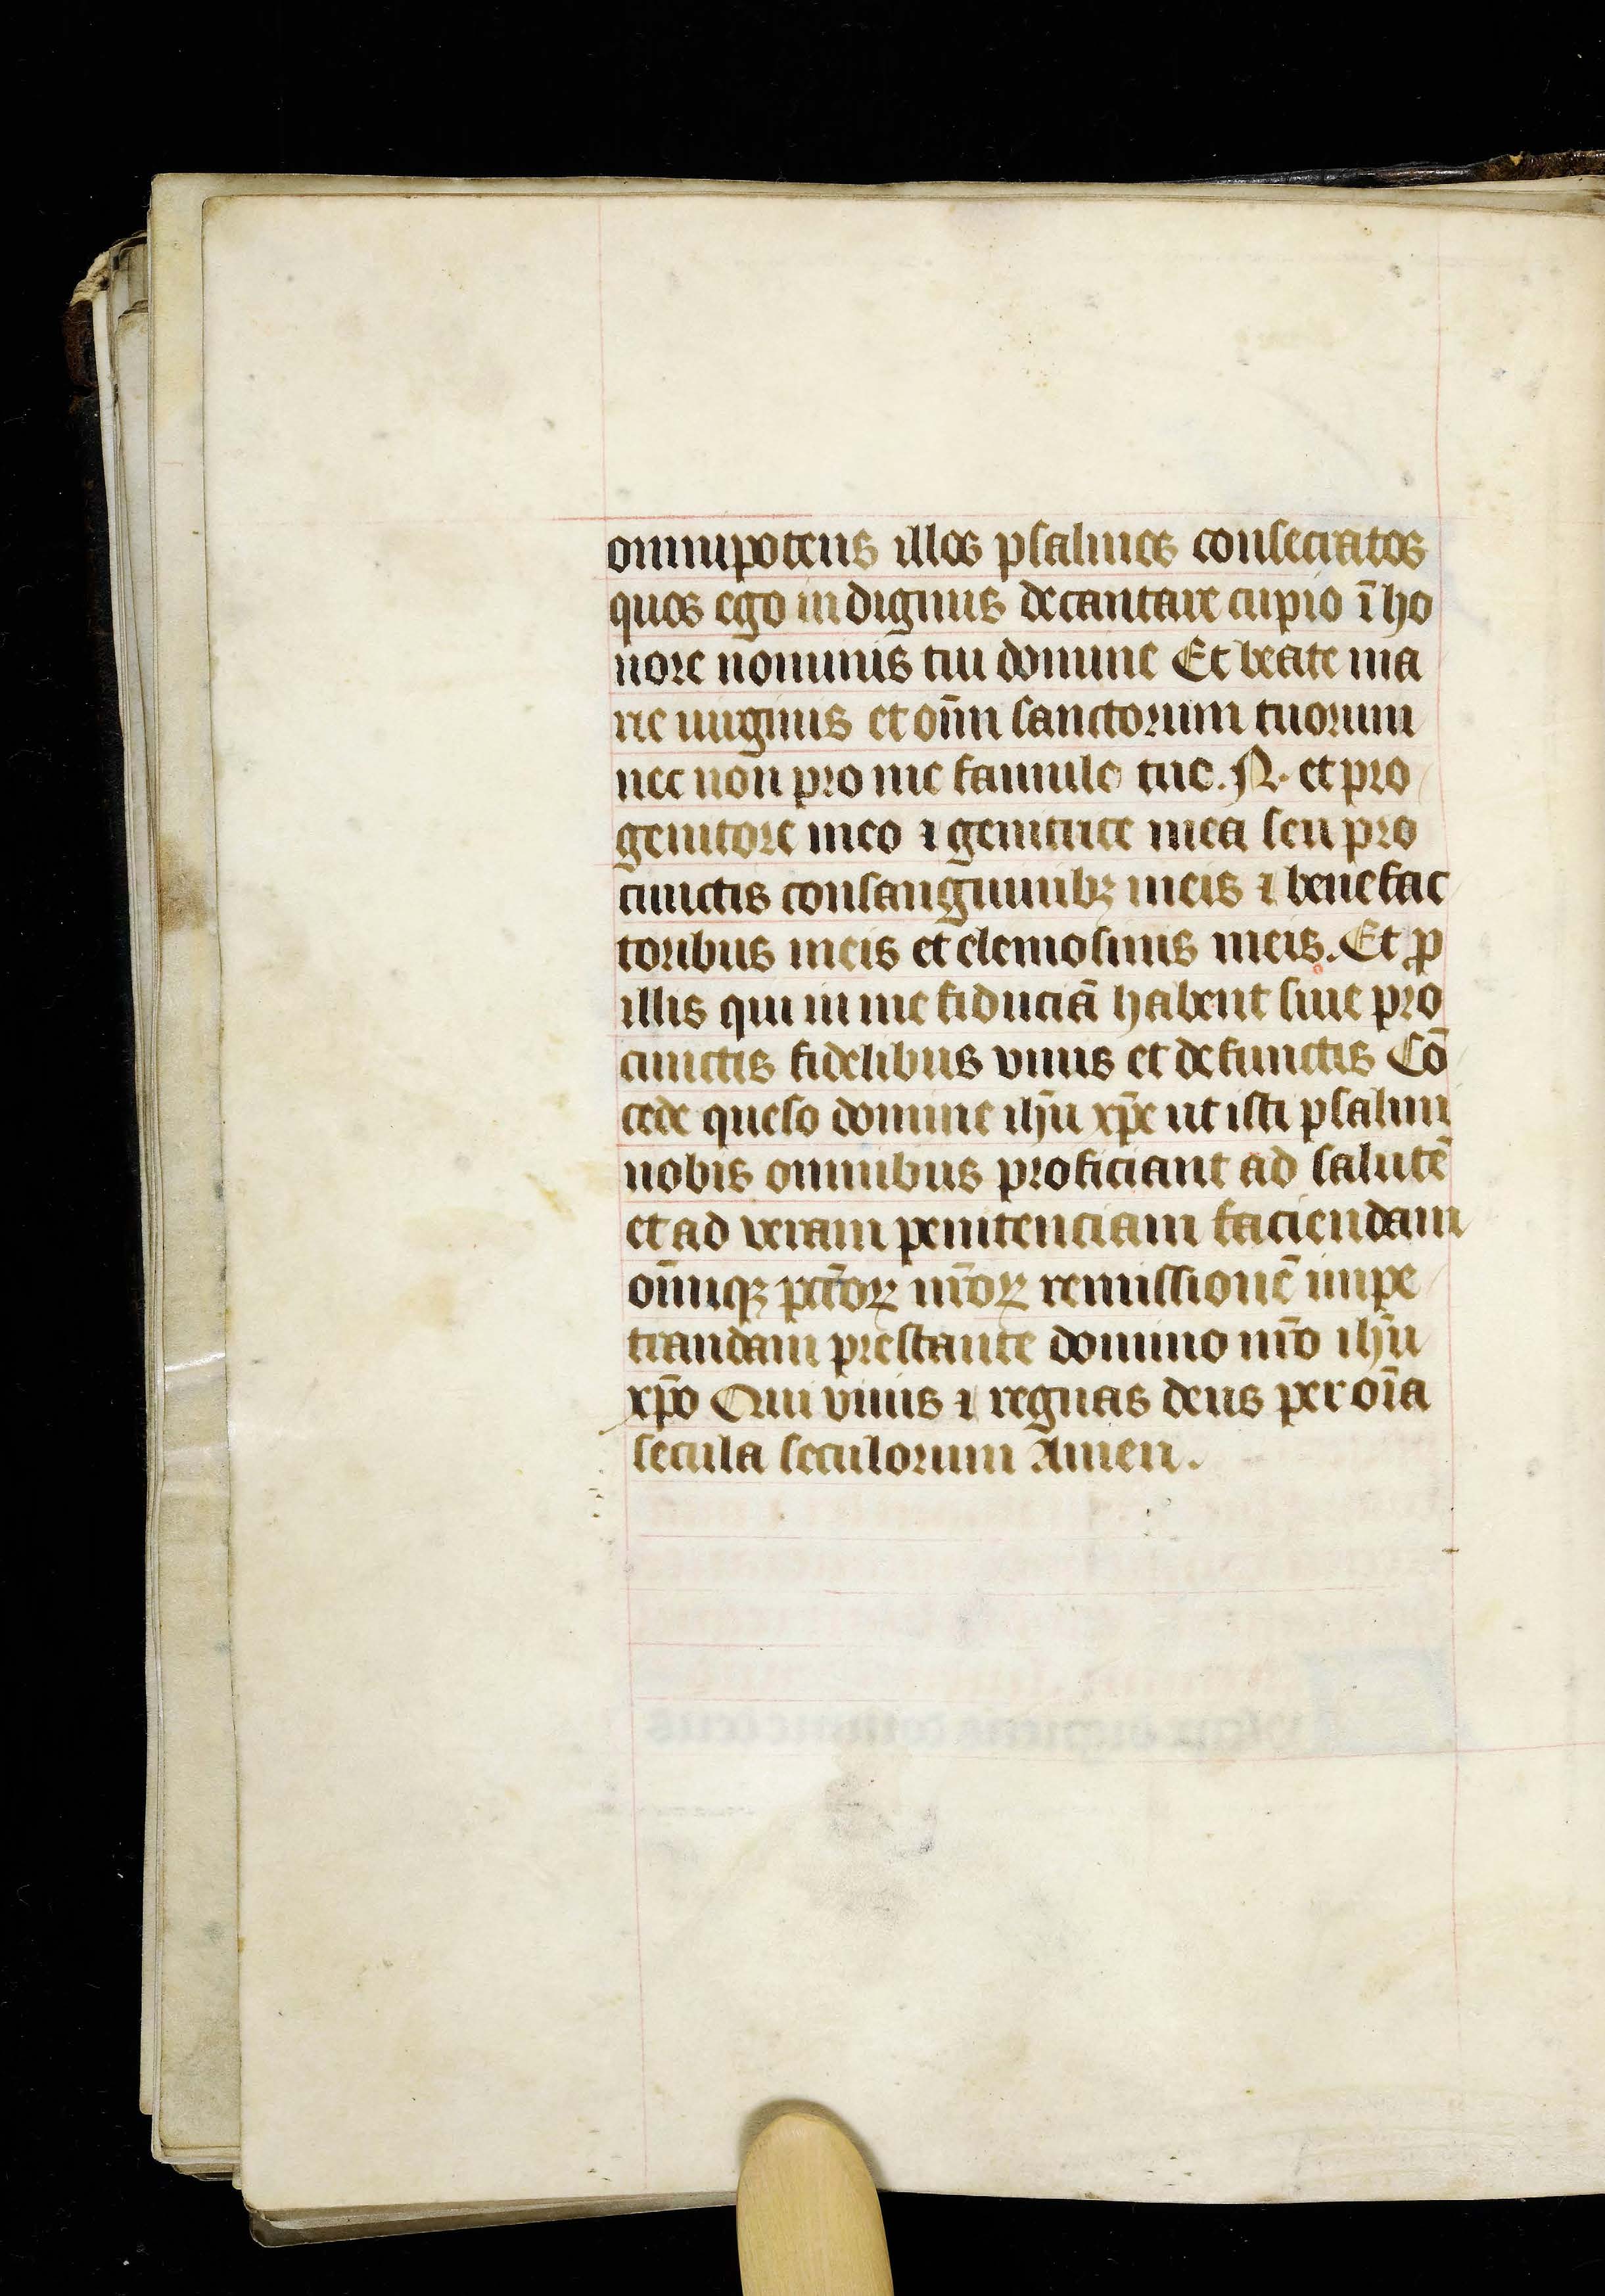 omnipotens illos psalmos consecratos
quos ego indignus decantare cupio ī ho
nore nominis tui domine Et beate ma
rie uirginis et om̄n sanctorum tuorum
nec non pro me famulo tuo. N. et pro
genitore meo ⁊ genitrice mea seu pro
cunctis consanguinibꝫ meis ⁊ benefac
toribus meis et elemosinis meis. Et ꝓ
illis qui in me fiduciā habent siue pro
cunctis fidelibus viuis et defunctis Cō
cede queso domine ihū xp̄e ut isti psalmi
nobis omnibus proficiant ad salutē
et ad veram penitenciam faciendam
om̄niqꝫ pctōꝝ nr̄oꝝ remissionē impe
trandam prestante domino nr̄o ihū
xp̄o Qui viuis ⁊ regnas deus per oīa
secula seculorum Amen.